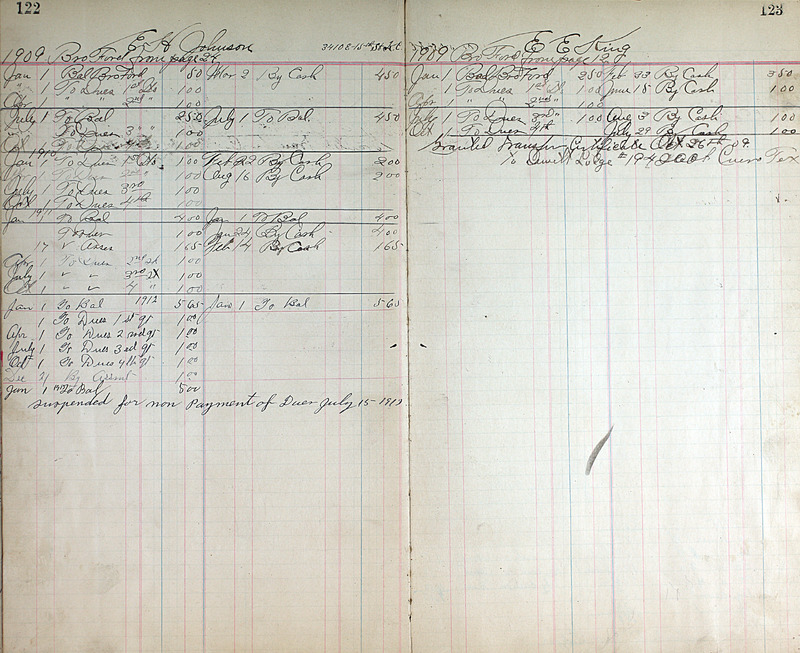 122
E H Johnson
3410 E-15th St
1909 Bro Ford from page 24
Jan 1 Bal Bro Ford 50 Mar 2 By Cash 450
" 1 To Dues 1st Qt 100
Apr 1 " " 2nd " 100
July 1 To Bal 250 July 1 To Bal. 450
To Dues 3 " 100
100
Jan 1910 1 To Dues 1st Qt 100 Feb 23 By Cash 200
100 Aug 16 By Cash 200
July 1 To Dues 3rd 100
Oct 1 To Dues 4th 100
Jan 1911 To Bal 400 Jan 1 To Bal 400
100 Jan 24 By Cash 400
17 " Asses 165 Feb 14 By Cash 165
Apr 1 To Dues 2nd Qt 100
July 1 " " 3rd Qt 100
Oct 1 " " 4 " 100
Jan 1 To Bal 1912 565 Jan 1 To Bal 565
1 To Dues 1st qt 1 00
Apr 1 To Dues 2nd qt 1 00
July 1 To Dues 3rd qt 1 00
Oct 1 To Dues 4th qt 1 00
Dec 21 By Assmt 1 00
Jan 1 To Bal 500
Suspended for non Payment of Dues July 15-1913
123
E E King
1909 Bro Ford from page
Jan 1 Bal Bro Ford 250 Feb 23 By Cash 350
" 1 To Dues 1st Qt 100 June 15 By Cash 100
Apr 1 " " 2nd " 100
July 1 To Dues 3rd " 100 Aug 3 By Cash 100
Oct 1 To Dues 4th 100 July 29 By Cash 100
Granted Transfer Certificate Oct 26th 09
To Dewitt Lodge # Cuero Tex